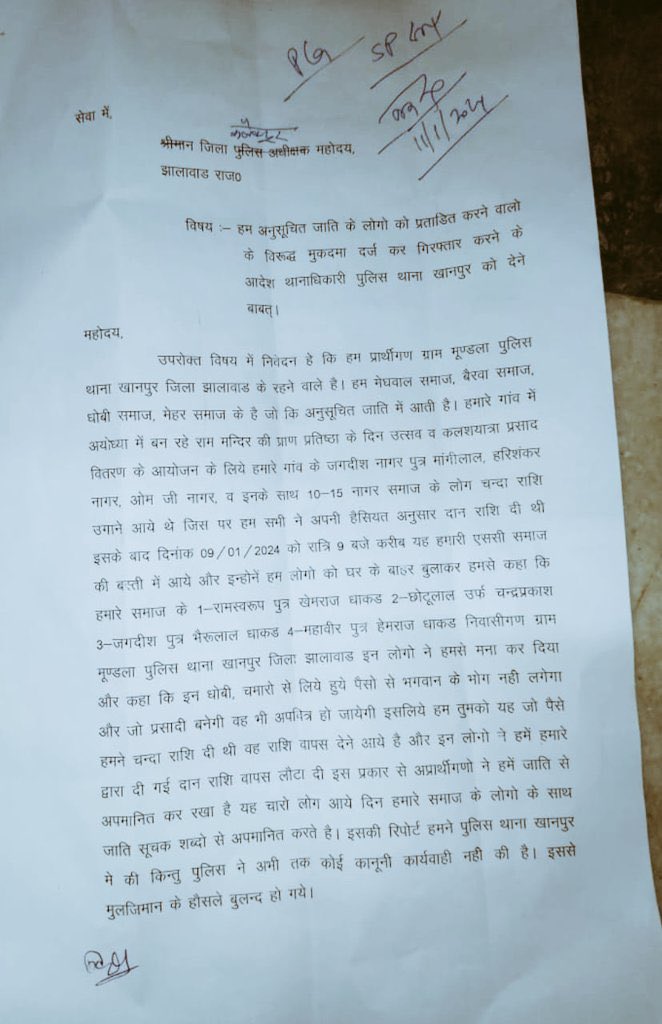 SP
11/1/2024
सेवा में,
श्रीमान जिला पुलिस अधीक्षक महोदय,
झालावाड राज0
विषय :– हम अनुसूचित जाति के लोगो को प्रताडित करने वालो
के विरूद्ध मुकदमा दर्ज कर गिरफ्तार करने के
आदेश थानाधिकारी पुलिस थाना खानपुर को देने
बाबत्।
महोदय,
उपरोक्त विषय में निवेदन हे कि हम प्रार्थीगण ग्राम मूण्डला पुलिस
थाना खानपुर जिला झालावाड के रहने वाले है। हम मेघवाल समाज, बैरवा समाज,
धोबी समाज, मेहर समाज के है जो कि अनुसूचित जाति में आती है। हमारे गांव में
अयोध्या में बन रहे राम मन्दिर की प्राण प्रतिष्ठा के दिन उत्सव व कलशयात्रा प्रसाद
वितरण के आयोजन के लिये हमारे गांव के जगदीश नागर पुत्र मांगीलाल, हरिशंकर
नागर, ओम जी नागर, व इनके साथ 10–15 नागर समाज के लोग चन्दा राशि
उगाने आये थे जिस पर हम सभी ने अपनी हैसियत अनुसार दान राशि दी थी
इसके बाद दिनांक 09/01/2024 को रात्रि 9 बजे करीब यह हमारी एससी समाज
की बस्ती में आये और इन्होनें हम लोगो को घर के बाहर बुलाकर हमसे कहा कि
हमारे समाज के 1–रामस्वरूप पुत्र खेमराज धाकड 2–छोटूलाल उर्फ चन्द्रप्रकाश
3–जगदीश पुत्र भैरूलाल धाकड 4–महावीर पुत्र हेमराज धाकड निवासीगण ग्राम
मूण्डला पुलिस थाना खानपुर जिला झालावाड इन लोगो ने हमसे मना कर दिया
और कहा कि इन धोबी, चमारो से लिये हुये पैसो से भगवान के भोग नही लगेगा
और जो प्रसादी बनेगी वह भी अपवित्र हो जायेगी इसलिये हम तुमको यह जो पैसे
हमने चन्दा राशि दी थी वह राशि वापस देने आये है और इन लोगो ने हमें हमारे
द्वारा दी गई दान राशि वापस लौटा दी इस प्रकार से अप्रार्थीगणो ने हमें जाति से
अपमानित कर रखा है यह चारो लोग आये दिन हमारे समाज के लोगो के साथ
जाति सूचक शब्दो से अपमानित करते है। इसकी रिपोर्ट हमने पुलिस थाना खानपुर
मे की किन्तु पुलिस ने अभी तक कोई कानूनी कार्यवाही नही की है। इससे
मुलजिमान के हौसले बुलन्द हो गये।